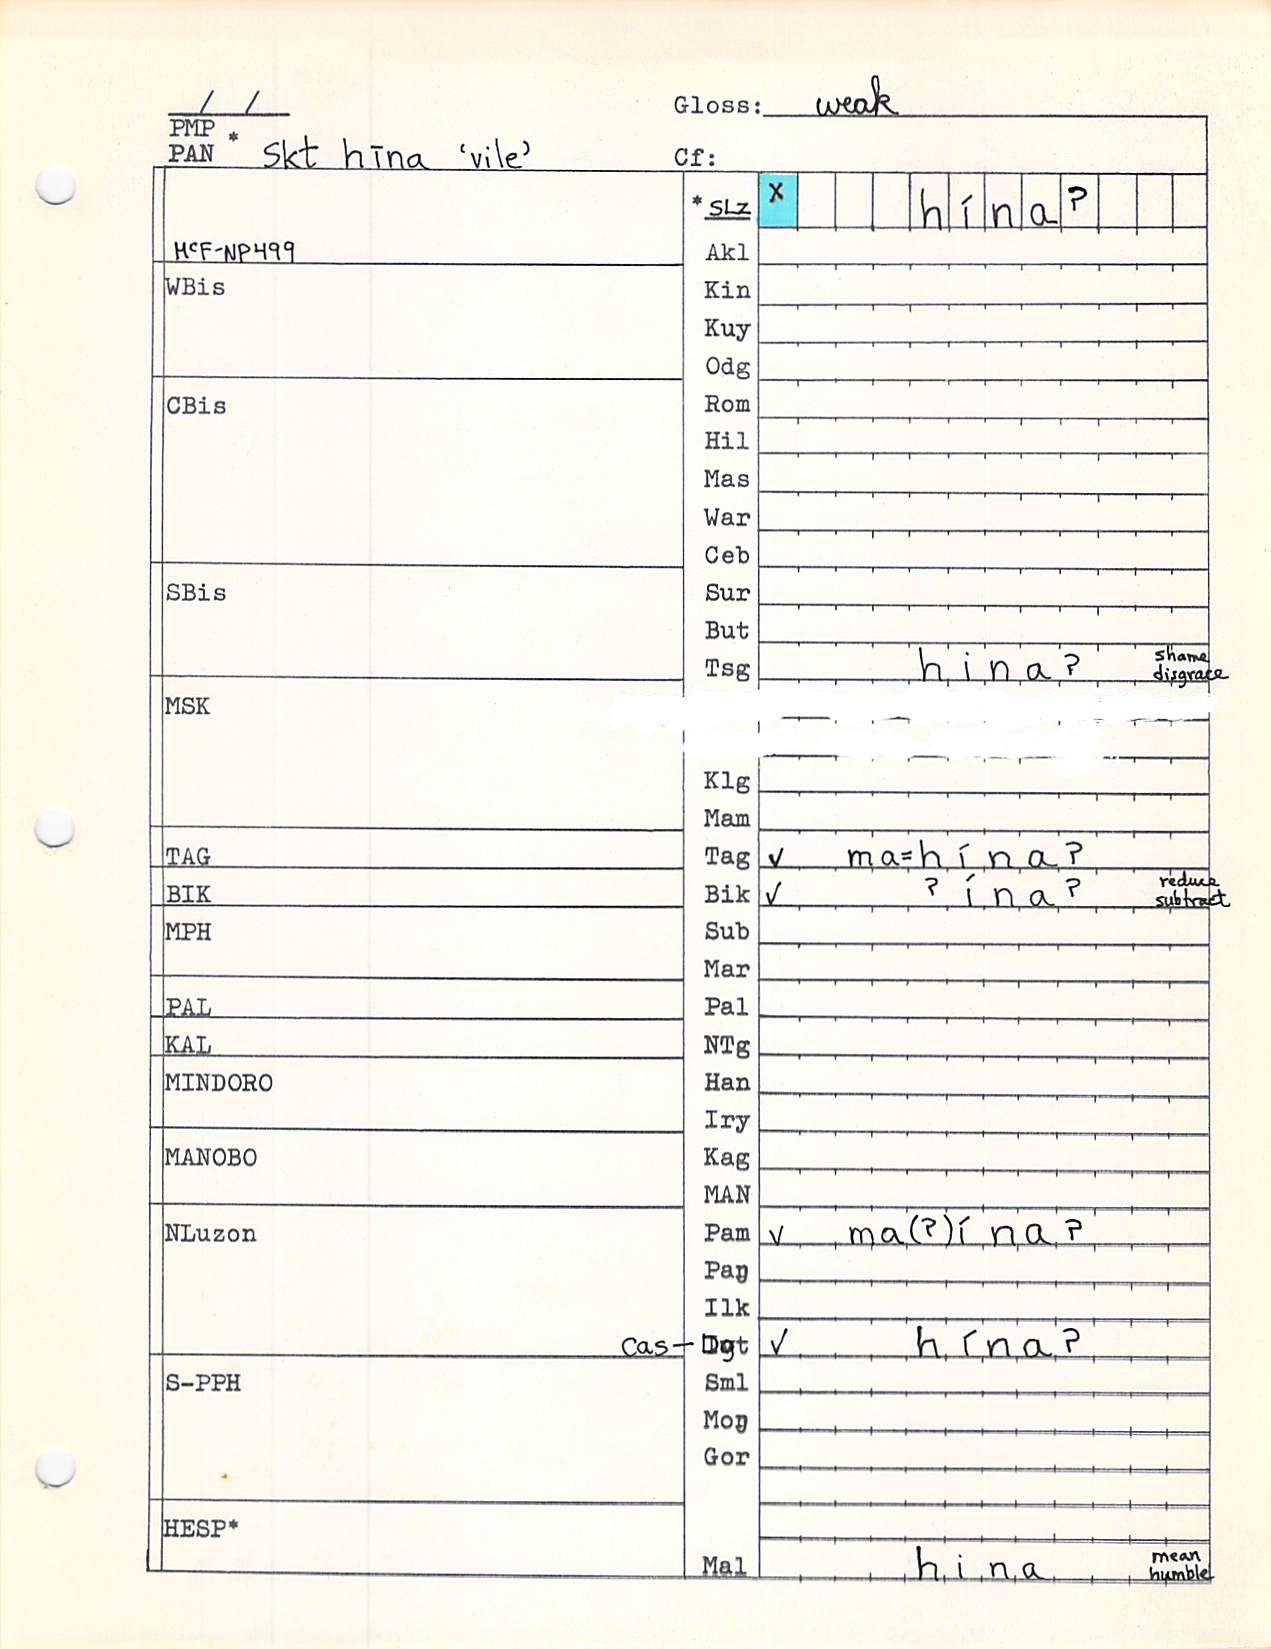 / / Gloss: weak
PMP
PAN * Skt hīna ‘vile’ Cf:
* SLZ x hína?
McF-NP499 Akl
WBis Kin
Kuy
Odg
CBis Rom
Hil
Mas
War
Ceb
SBis Sur
But
Tsg hina? shame
disgrace
MSK
Klg
Mam
TAG Tag ✓ ma=hína?
BIK Bik ✓ ?ína? reduce
subtract
MPH Sub
Mar
PAL Pal
KAL NTg
MINDORO Han
Iry
MANOBO Kag
MAN
NLuzon Pam ✓ ma(?)ína?
Paŋ
Ilk
Cas- Dgt ✓ hína?
S-PPH Sml
Moŋ
Gor
HESP*
Mal hina mean
humble